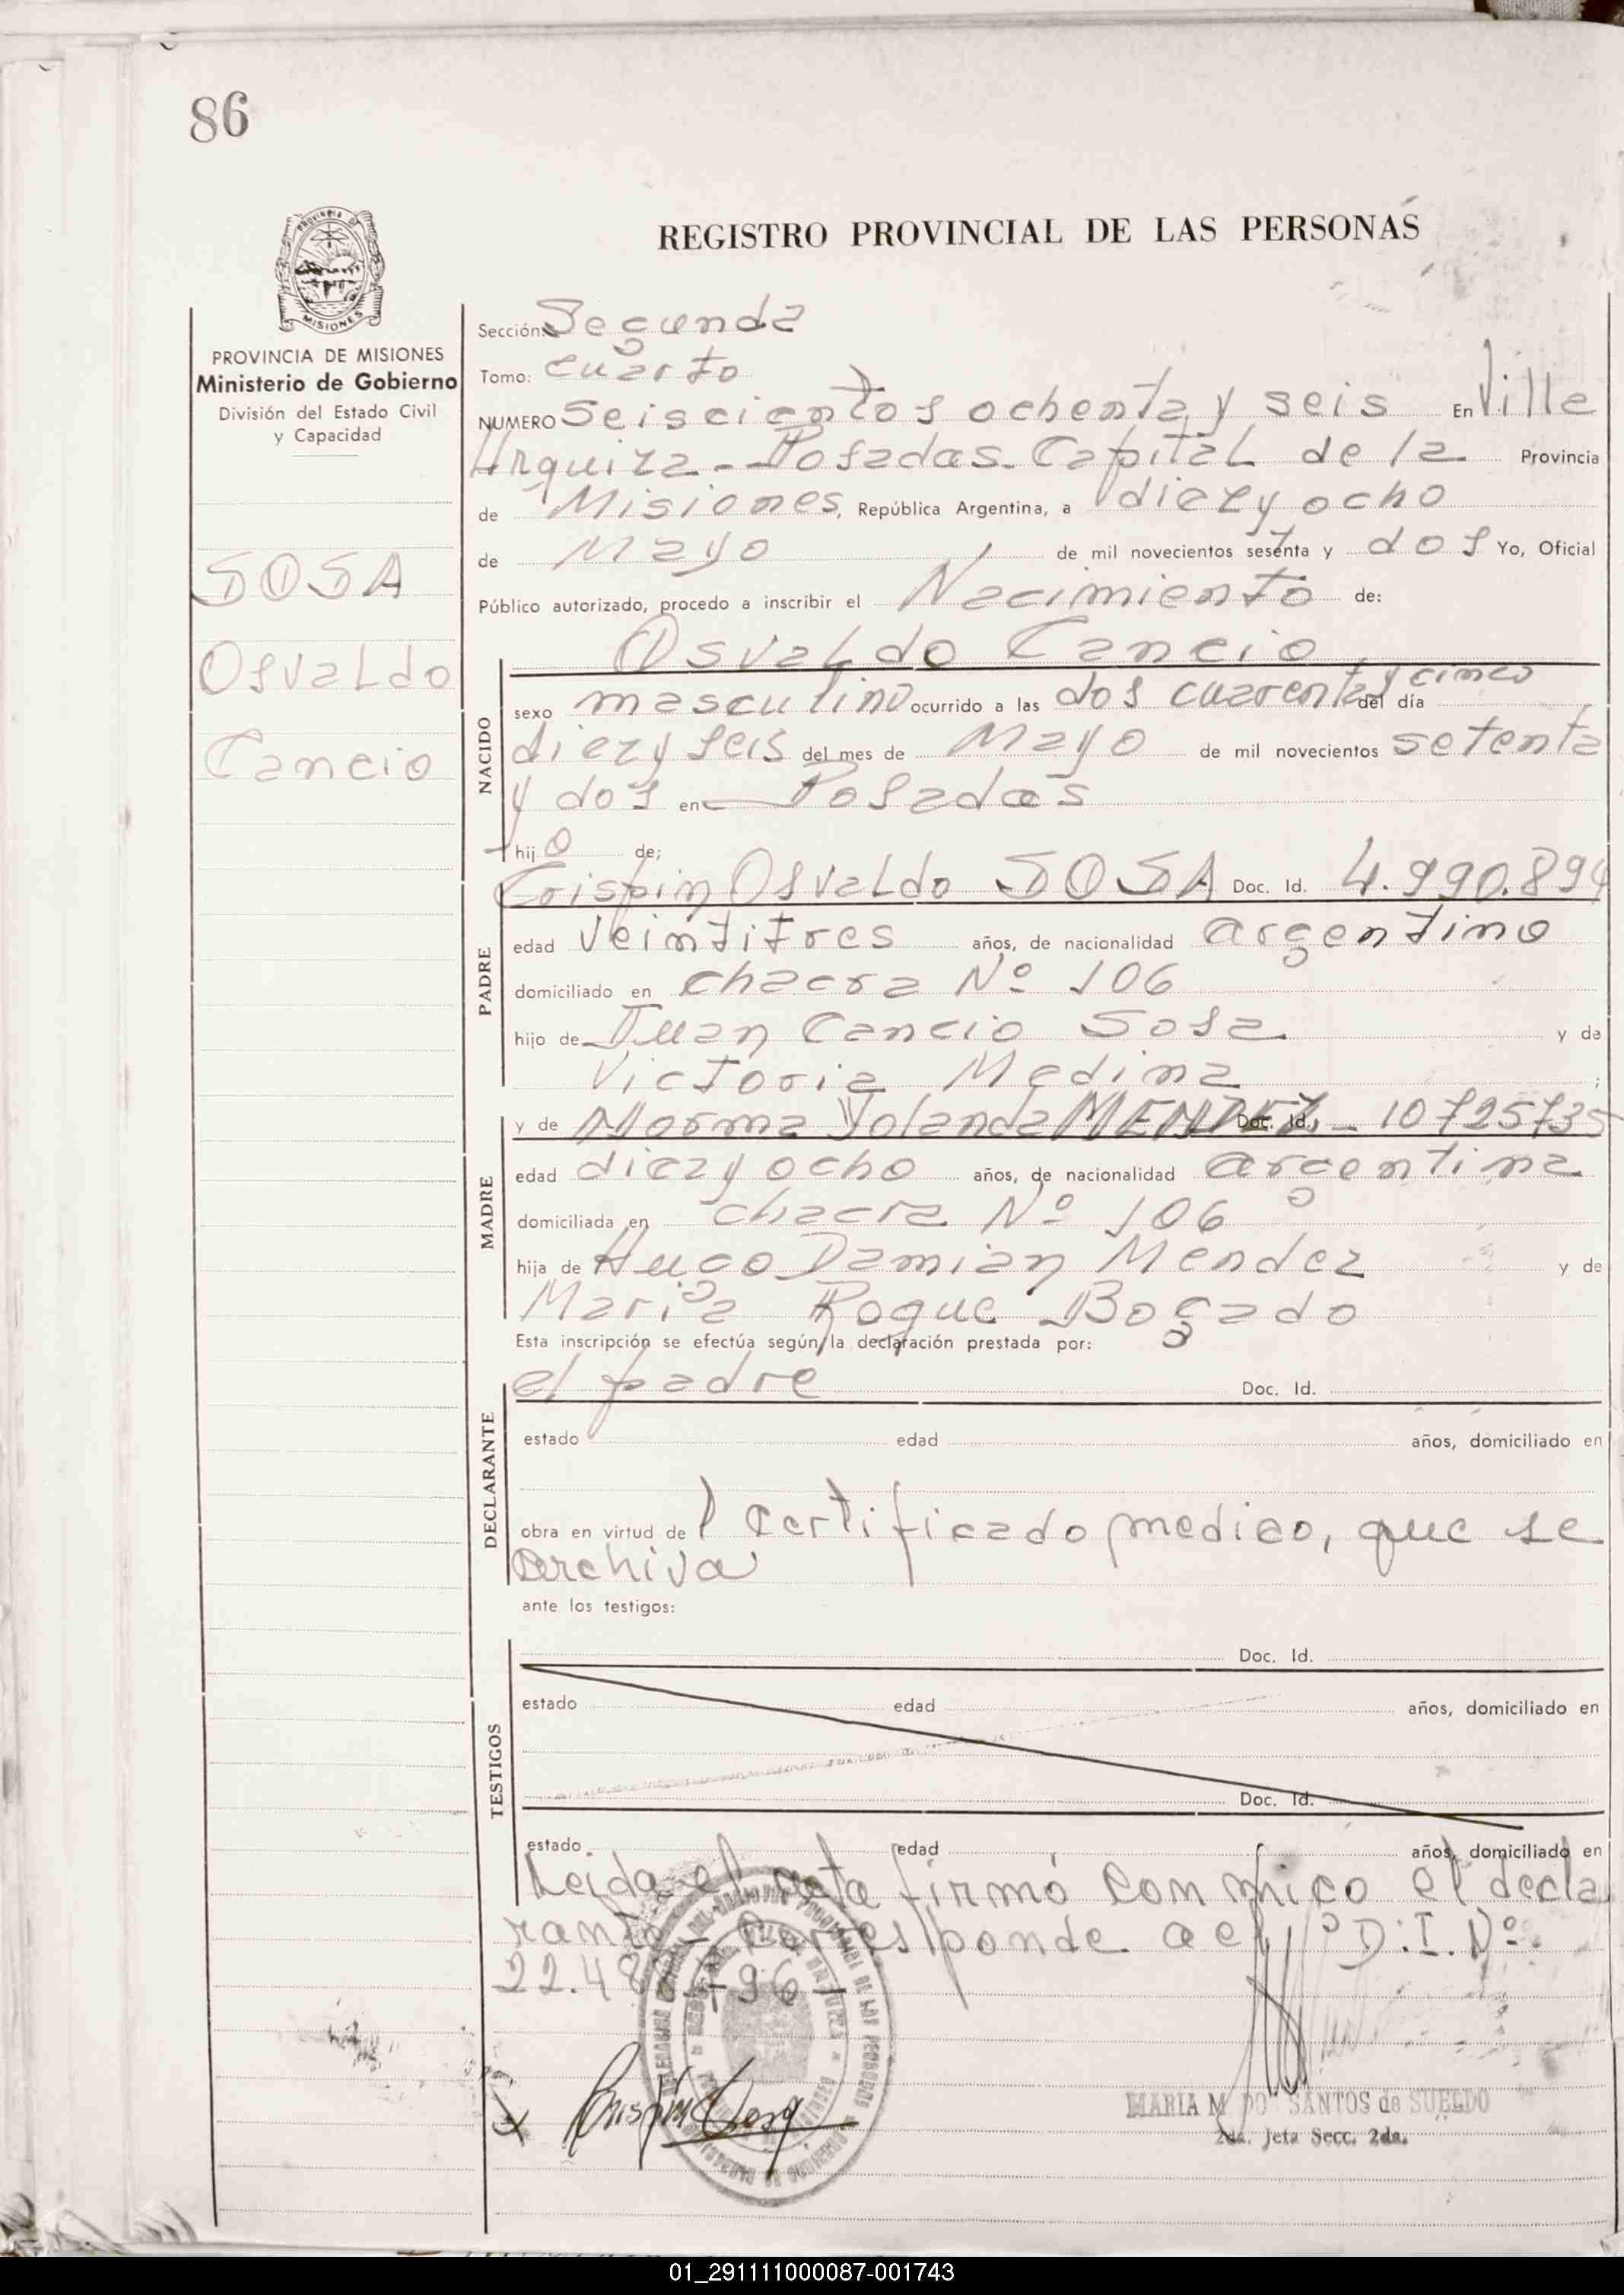 86
PROVINCIA DE
MISIONES
PROVINCIA DE MISIONES
Ministerio de Gobierno
División del Estado Civil
y Capacidad
SOSA
Osvaldo
Cancio
REGISTRO PROVINCIAL DE LAS PERSONAS
Sección: Segunda
Tomo: Cuarto
NUMERO Seiscientos ochenta y seis En Villa
Urquiza - Posadas. Capital de la Provincia
de Misiones, República Argentina, a diez y ocho
de Mayo de mil novecientos sesenta y dos Yo, Oficial
Público autorizado, procedo a inscribir el Nacimiento de:
Osvaldo Cancio
NACIDO
sexo masculino ocurrido a las dos cuarenta y cinco del día
diez y seis del mes de Mayo de mil novecientos setenta
y dos en Posadas
hijo de;
Crispin Osvaldo SOSA Doc. Id. 4.990.894
PADRE
edad Veintitres años, de nacionalidad argentino
domiciliado en chacra Nº 106
hijo de Juan Cancio Sosa y de
Victoria Medina ;
y de Norma Yolanda MENDEZ Doc. Id. - 10725735
MADRE
edad diez y ocho años, de nacionalidad argentina
domiciliada en chacra Nº 106
hija de Hugo Damian Mendez y de
Maria Roque Bogado
Esta inscripción se efectúa según la declaración prestada por:
el padre Doc. Id.
DECLARANTE
estado edad años, domiciliado en
obra en virtud de l certificado medico, que se
archiva
ante los testigos:
Doc. Id.
TESTIGOS
estado edad años, domiciliado en
Doc. Id.
estado edad años, domiciliado en
Leida el acta firmó conmigo el decla
rante - Corresponde a el D.I.Nº
Crispin Sosa
MARIA M. DO SANTOS de SUELDO
2da. Jefa Secc. 2da.
01_291111000087-001743